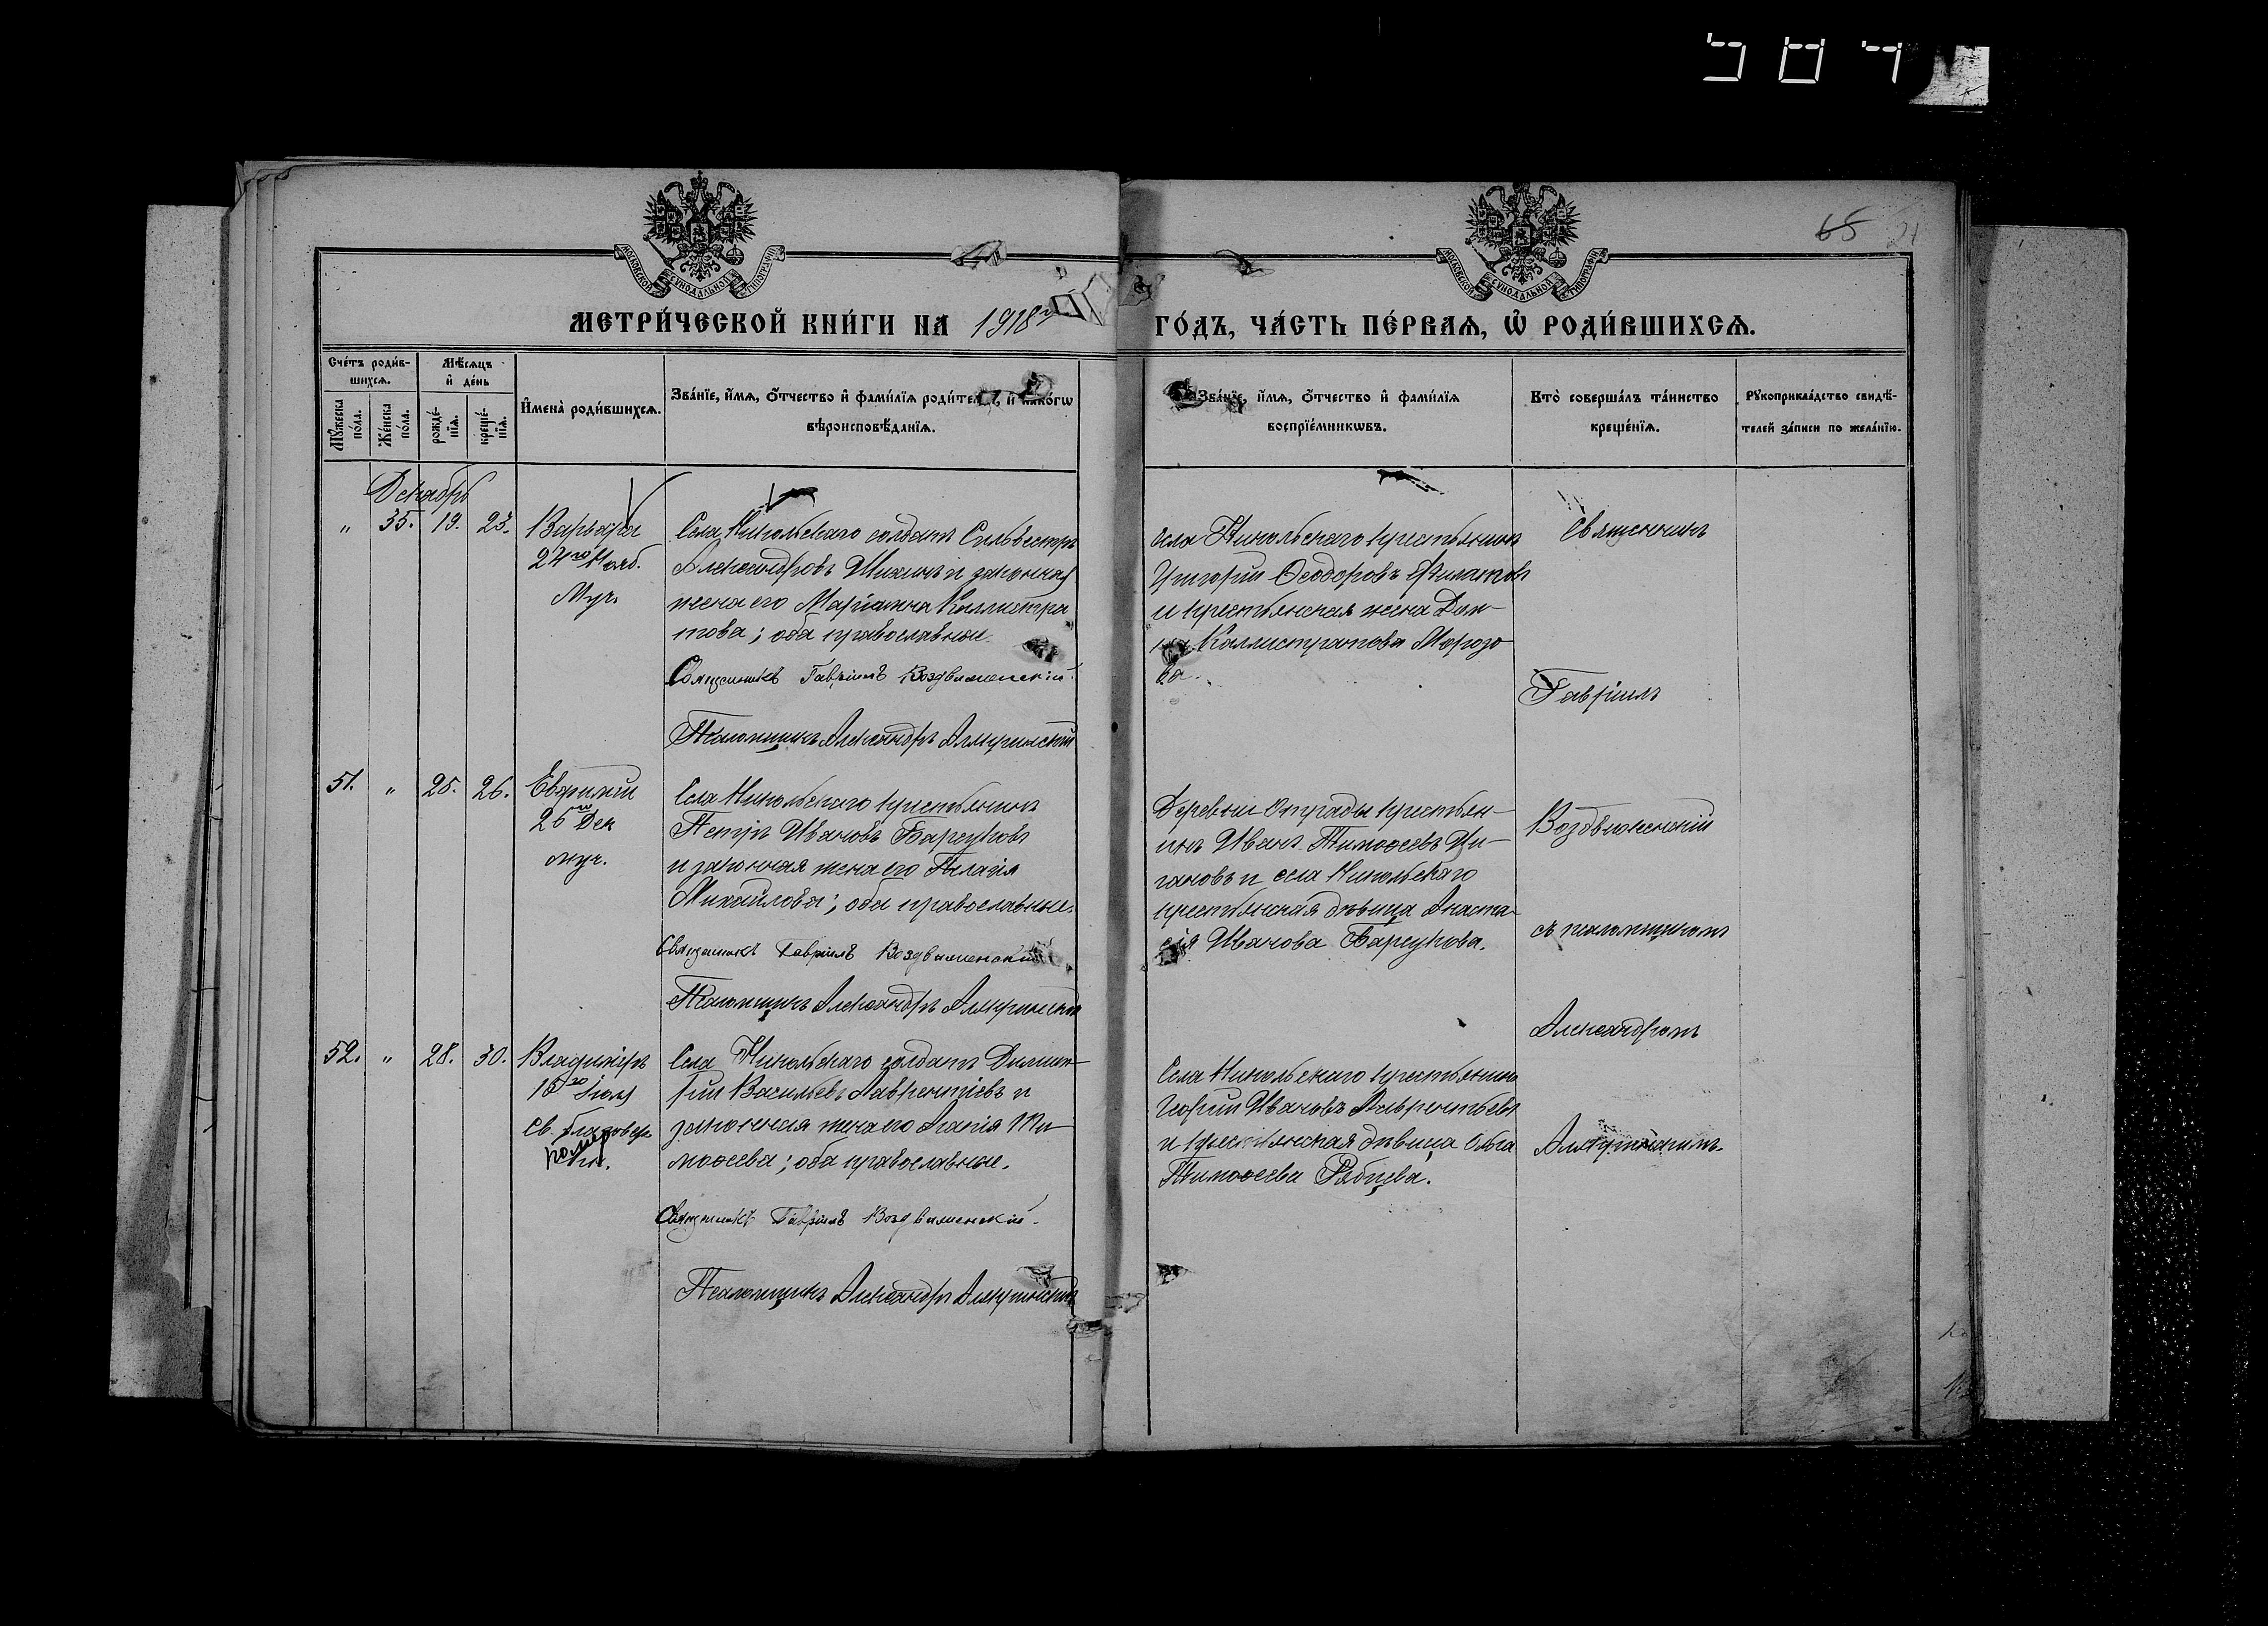 65 21
МОСКОВСКОЙ СѴНОДАЛЬНОЙ ТИПОГРАФІИ
МОСКОВСКОЙ СѴНОДАЛЬНОЙ ТИПОГРАФІИ
МЕТРИ́ЧЕСКОЙ КНИ́ГИ НА 1918й
ГО́ДЪ, ЧА́СТЬ ПЕ́РВАѦ, Ѽ РОДИ́ВШИХСѦ.
Сче́тъ роди́в-
шихсѧ.
Мѣ́сѧцъ
и҆ де́нь
Мꙋ́жеска по́ла.
Же́нска по́ла.
рожде́-нїѧ.
креще́-нїѧ.
И҆мена̀ роди́вшихсѧ.
Зва́нїе, и҆́мѧ, ѻ҆́тчество и҆ фами́лїѧ роди́тел, и҆ како́гѡ
вѣроисповѣ́данїѧ.
Зва́нїе, и҆́мѧ, ѻ҆́тчество и҆ фами́лїѧ
воспрїе́мникѡвъ.
Кто̀ соверша́лъ та́инство
креще́нїѧ.
Рꙋкоприкла́дство свидѣ́-
телей за́писи по жела́нїю.
Декабрь
" 35. 19. 23.
Варвара
24го Нояб.
Муч.
Села Никольскаго солдатъ Сильвестръ
Александровъ Шихинъ и законная
жена его Маріанна Каллистра
това; оба православные.
Священникъ Гавріилъ Воздвиженскій.
Псаломщикъ Александръ
села Никольскаго крестьянинъ
Григорій Ѳеодоровъ Филатовъ
и крестьянская жена Дом-
Каллистратова Морозо
ва.
Священникъ
Гавріилъ
51. " 25. 26.
Евфимій
26го Дек
муч.
Села Никольскаго крестьянинъ
Петръ Ивановъ Барсуковъ
и законная жена его Пелагія
Михайлова; оба православные.
Священникъ Гавріилъ Воздвиженскій
Псаломщикъ Александръ
Деревни Отрады крестьян-
инъ Иванъ Тимоѳеевъ Ци-
гановъ и села Никольскаго
крестьянская дѣвица Анаста-
сія Иванова Барсукова.
Воздвиженскій
съ псаломщикомъ
Александромъ
52. " 28. 30.
Владиміръ
15го Іюля
св. благовѣр
кн.
помер
Села Никольскаго солдатъ Димит-
рій Васильевъ Лаврентіевъ и
законная жена его Агаѳія Ти-
моѳеева; оба православные.
Священникъ Гавріилъ Воздвиженскій.
Псаломщикъ Александръ
Села Никольскаго крестьянинъ
Георгій Ивановъ Лаврентьевъ
и крестьянская дѣвица Ольга
Тимоѳеева Рябцева.